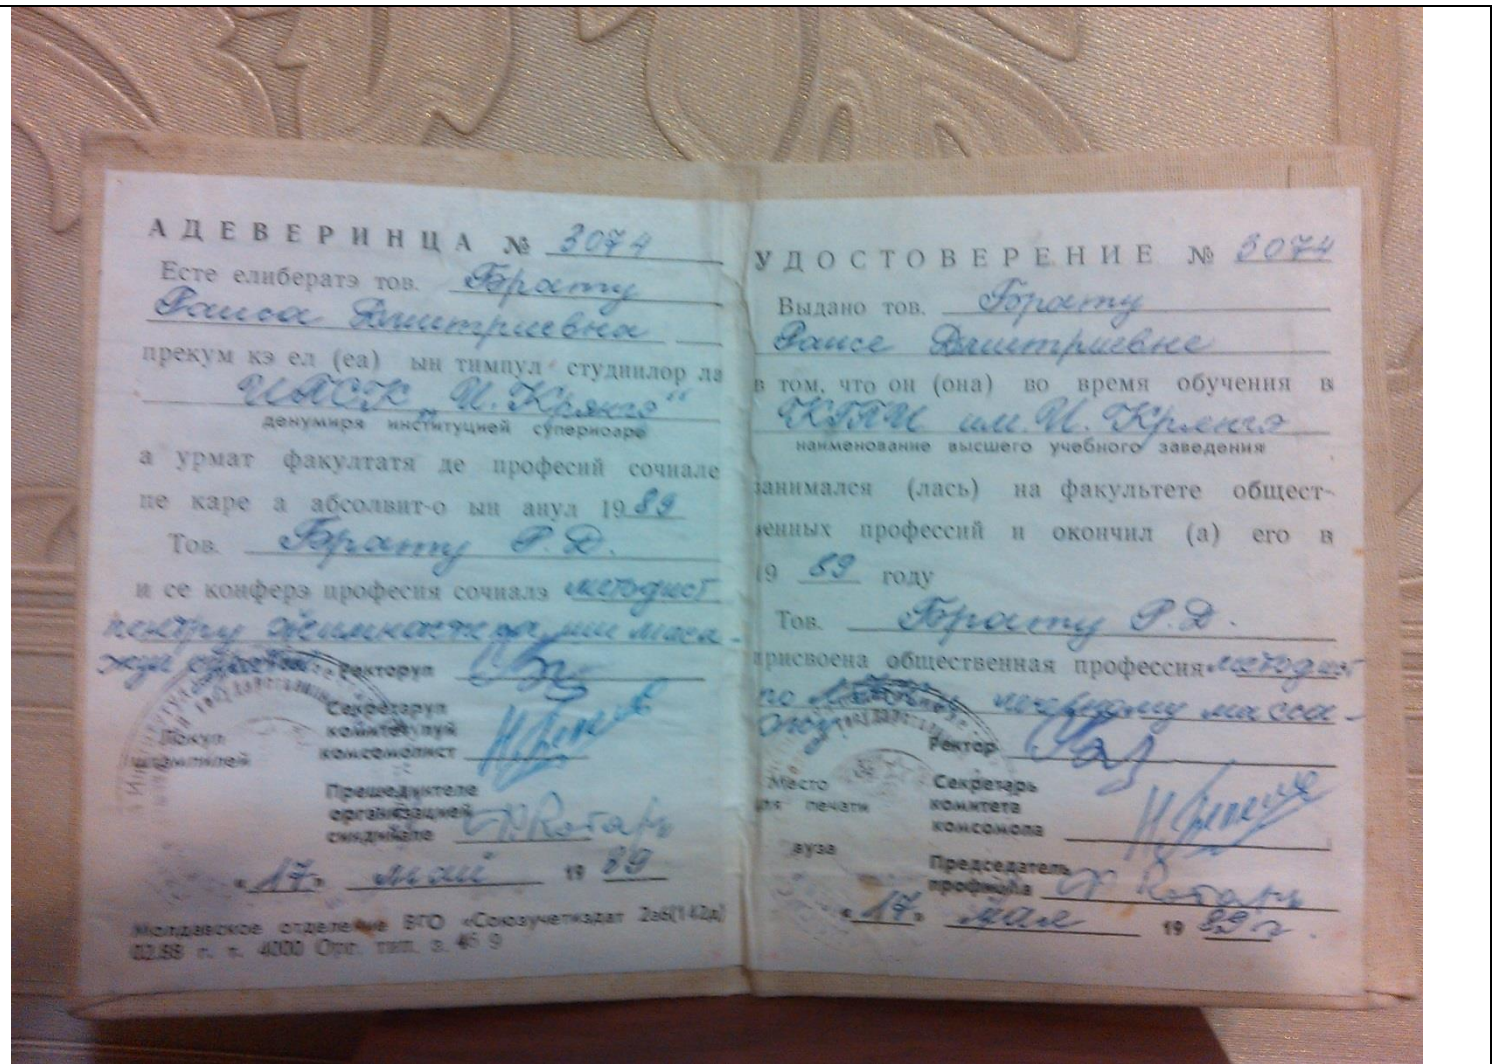 АДЕВЕРИНЦА № 3074
Есте елибератэ тов. Брату
Раиса Дмитриевна
прекум кэ ел (еа) ын тимпул студиилор ла
ИПСК "И. Крянгэ"
денумиря институцией супериоаре
а урмат факултатя де професий сочиале
пе каре а абсолвит-о ын анул 19 89
Тов. Брату Р. Д.
и се конферэ професия сочиалэ методист
пентру
Ректорул
Секретарул
комитетулуй
комсомолист
Локул
штампилей
Прешединтеле
организацией
синдикале Ротарь
« 17 » май 19 89
Молдавское отделение ВГО «Союзучетиздат 2аб(142д)
02.88 г. т. 4000 Орг. тип. з.
УДОСТОВЕРЕНИЕ № 3074
Выдано тов. Брату
Раисе Дмитриевне
в том, что он (она) во время обучения в
КГПИ им. И. Крянгэ
наименование высшего учебного заведения
занимался (лась) на факультете общест-
венных профессий и окончил (а) его в
19 89 году
Тов. Брату Р. Д.
присвоена общественная профессия методист
по лечебному масса-
жу
Ректор
Место
для печати
вуза
Секретарь
комитета
комсомола
Председатель
профкома Ротарь
« 17 » мая 19 89 г.